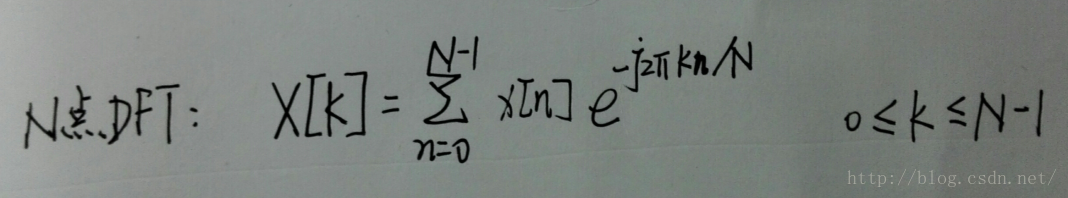 N点DFT: X[k] = \sum_{n=0}^{N-1} x[n] e^{-j2πkn/N} 0≤k≤N-1
http://blog.csdn.net/